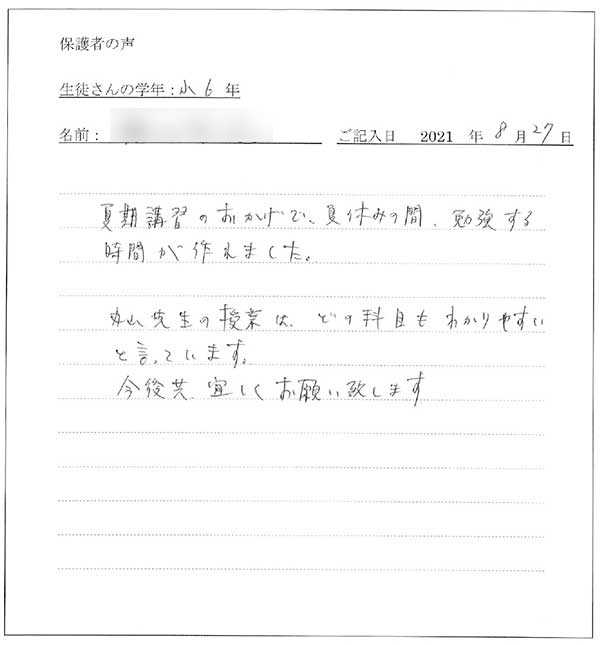 保護者の声
生徒さんの学年：小6年
名前：
ご記入日 2021 年 8月27日
夏期講習のおかげで、夏休みの間、勉強する
時間が作れました。
丸山先生の授業は、どの科目もわかりやすい
と言っています。
今後共、宜しくお願い致します